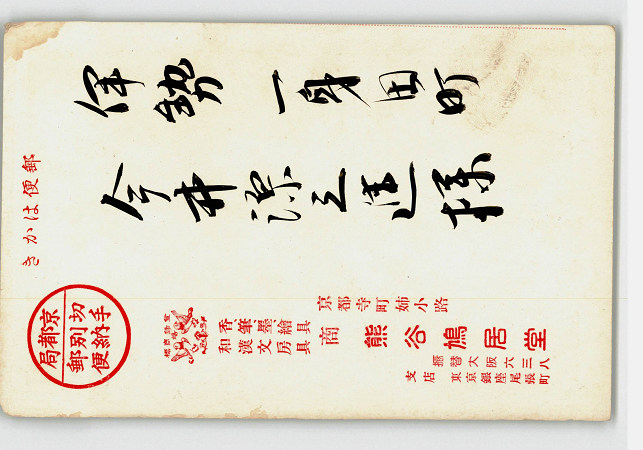 郵便はかき
伊勢 一身田町
今井源之進様
切手
別納
郵便
京都局
香、筆、墨、繪具
和漢文房具
商
京都寺町姉小路
熊谷鳩居堂
振替大阪六三八
支店 東京銀座尾張町